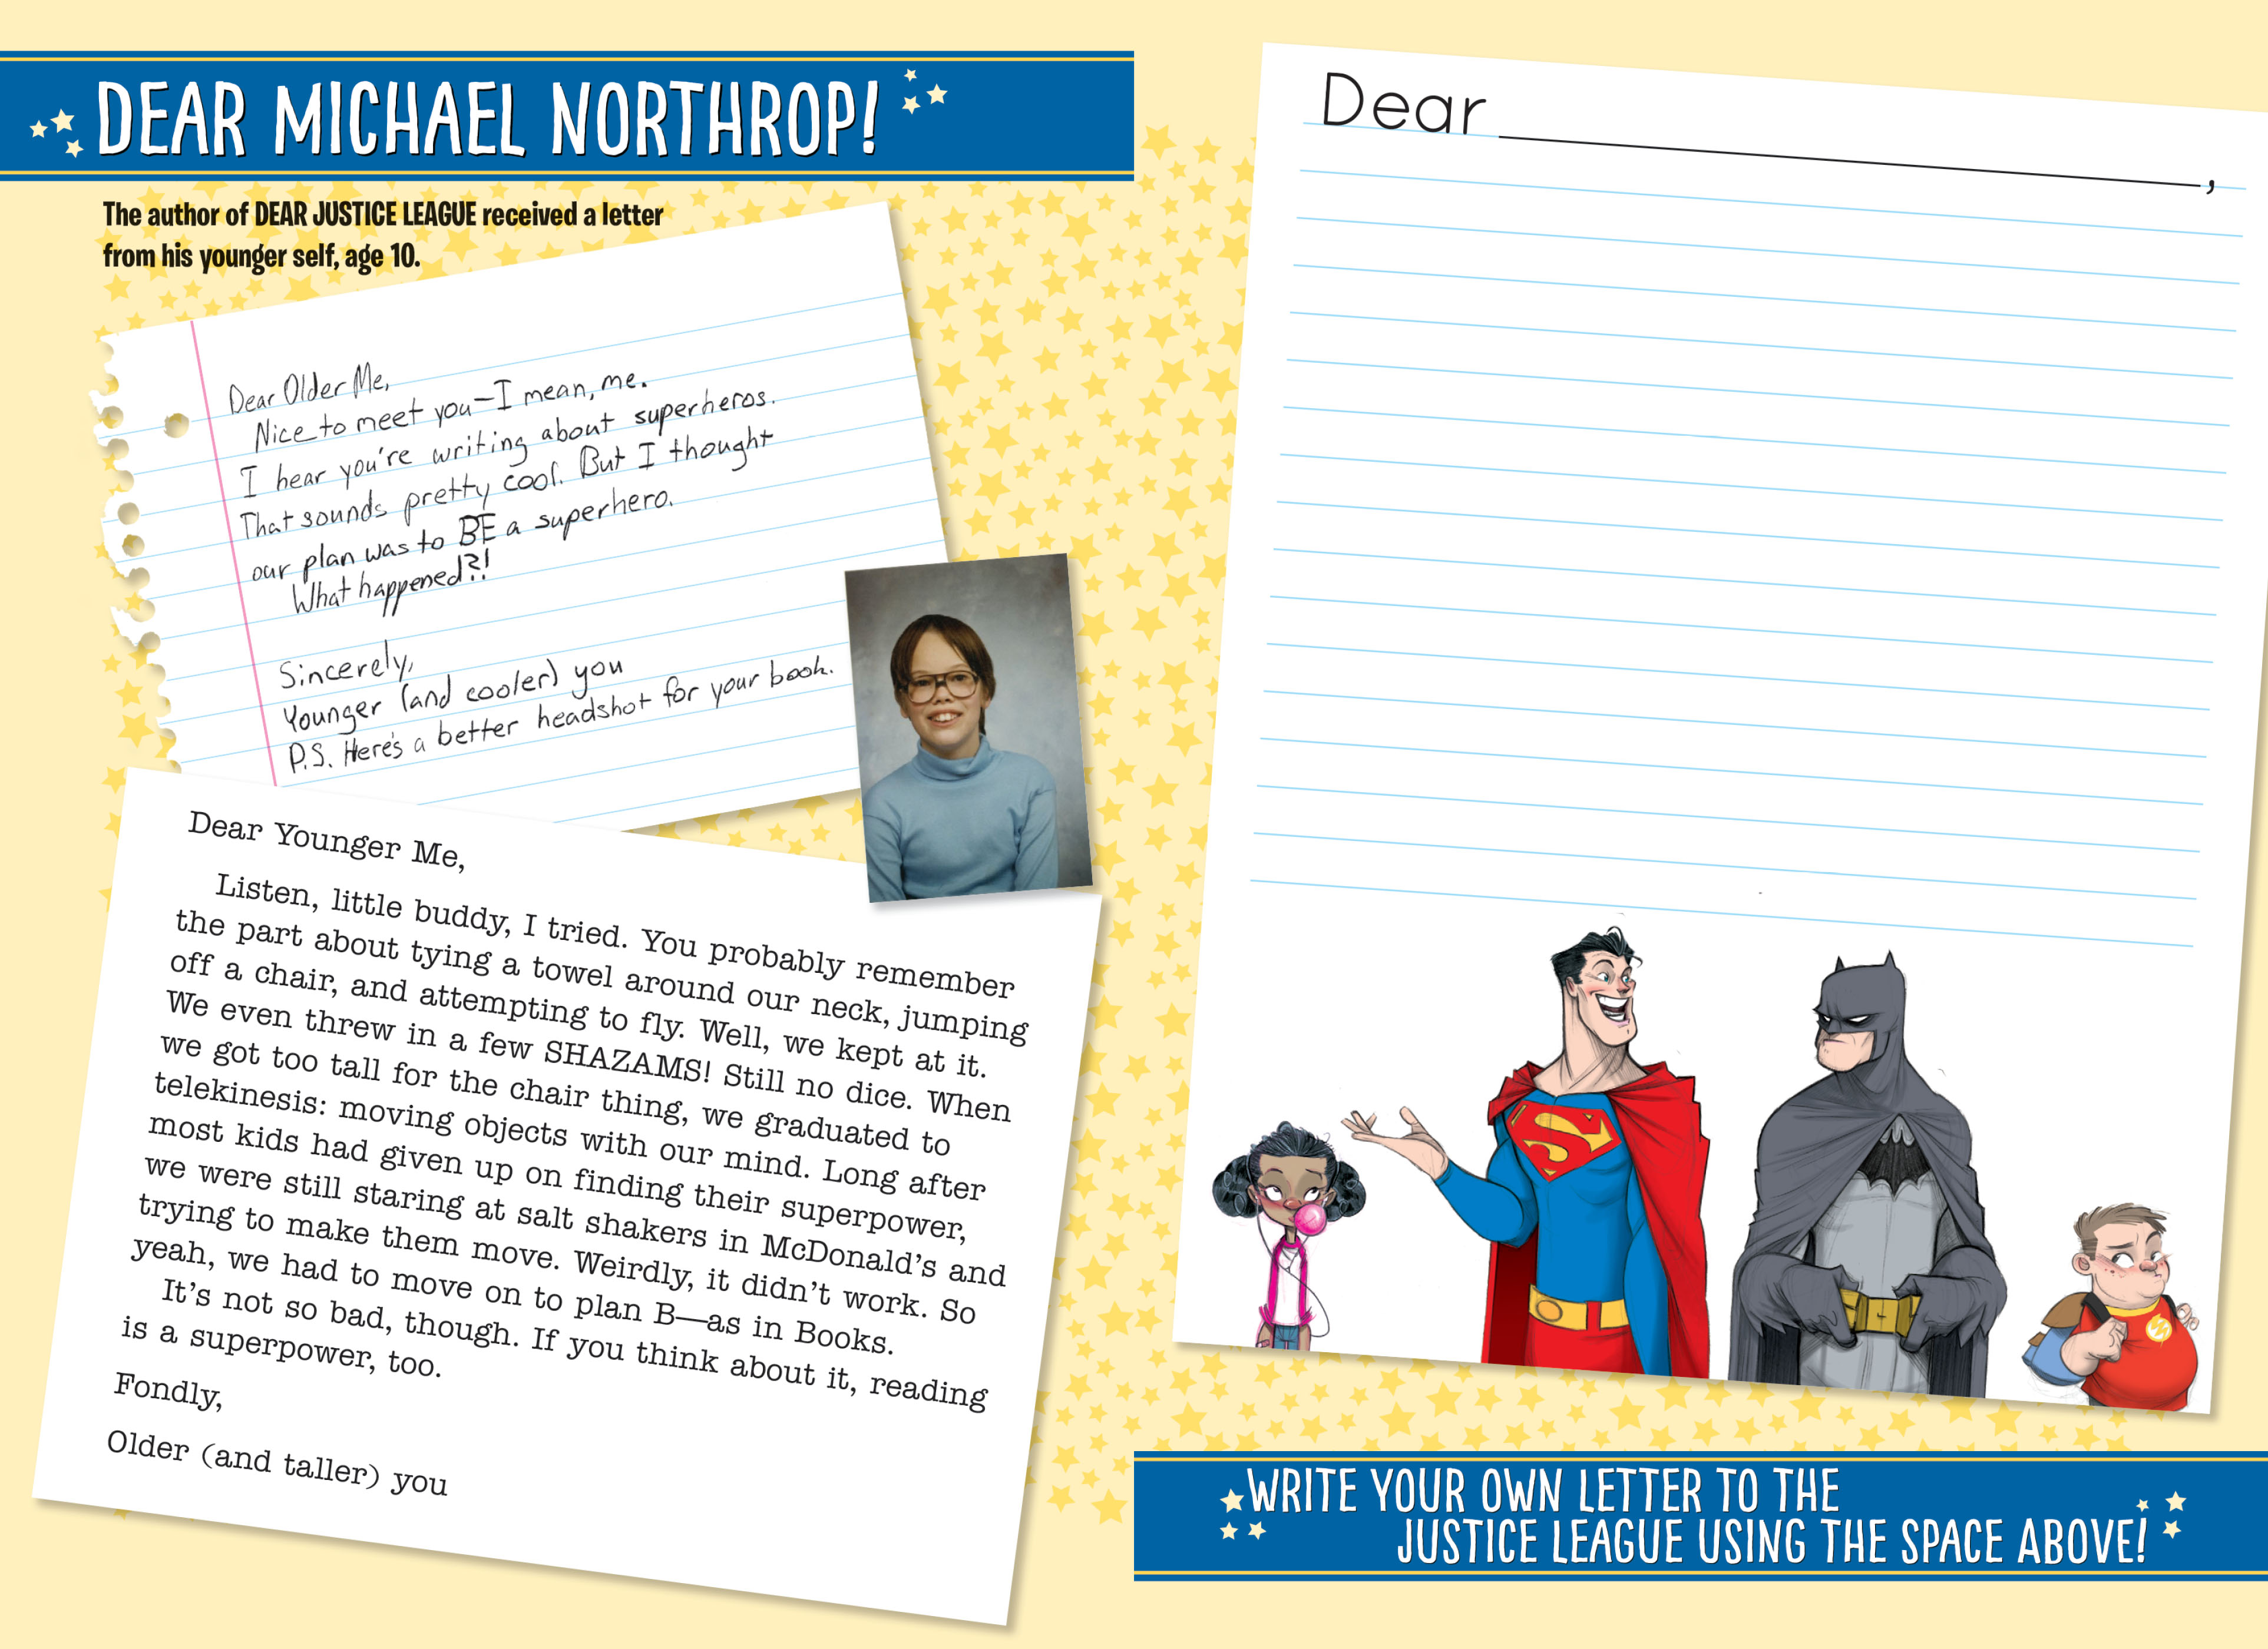 DEAR MICHAEL NORTHROP!
The author of DEAR JUSTICE LEAGUE received a letter
from his younger self, age 10.
Dear Older Me,
Nice to meet you—I mean, me.
I hear you're writing about superheros.
That sounds pretty cool. But I thought
our plan was to BE a superhero.
What happened?!
Sincerely,
Younger (and cooler) you
P.S. Here's a better headshot for your book.
Dear Younger Me,
Listen, little buddy, I tried. You probably remember
the part about tying a towel around our neck, jumping
off a chair, and attempting to fly. Well, we kept at it.
We even threw in a few SHAZAMS! Still no dice. When
we got too tall for the chair thing, we graduated to
telekinesis: moving objects with our mind. Long after
most kids had given up on finding their superpower,
we were still staring at salt shakers in McDonald's and
trying to make them move. Weirdly, it didn't work. So
yeah, we had to move on to plan B—as in Books.
It's not so bad, though. If you think about it, reading
is a superpower, too.
Fondly,
Older (and taller) you
Dear ,
S
WRITE YOUR OWN LETTER TO THE
JUSTICE LEAGUE USING THE SPACE ABOVE!